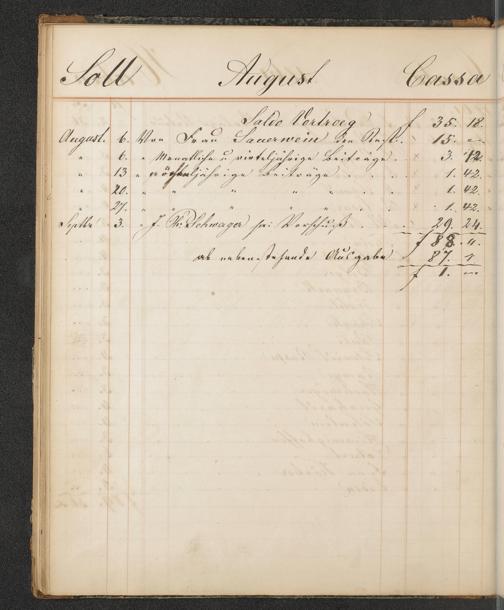 Soll August Cassa
Saldo Vortrag f 35. 18.
August. 6. Von Frau Sauerwein den Rest. 15. —
" 6. " Monatliche u. vierteljährige Beiträge 3. 12.
" 13 " vierteljährige Beiträge 1. 42.
" 20. " " " " 1. 42.
" 27. " " " " 1. 42.
Septbr 3. " J. Schwager pr. Vorschuß 29. 24.
f 88. "
ab nebenstehende Ausgabe 87. "
f 1. —